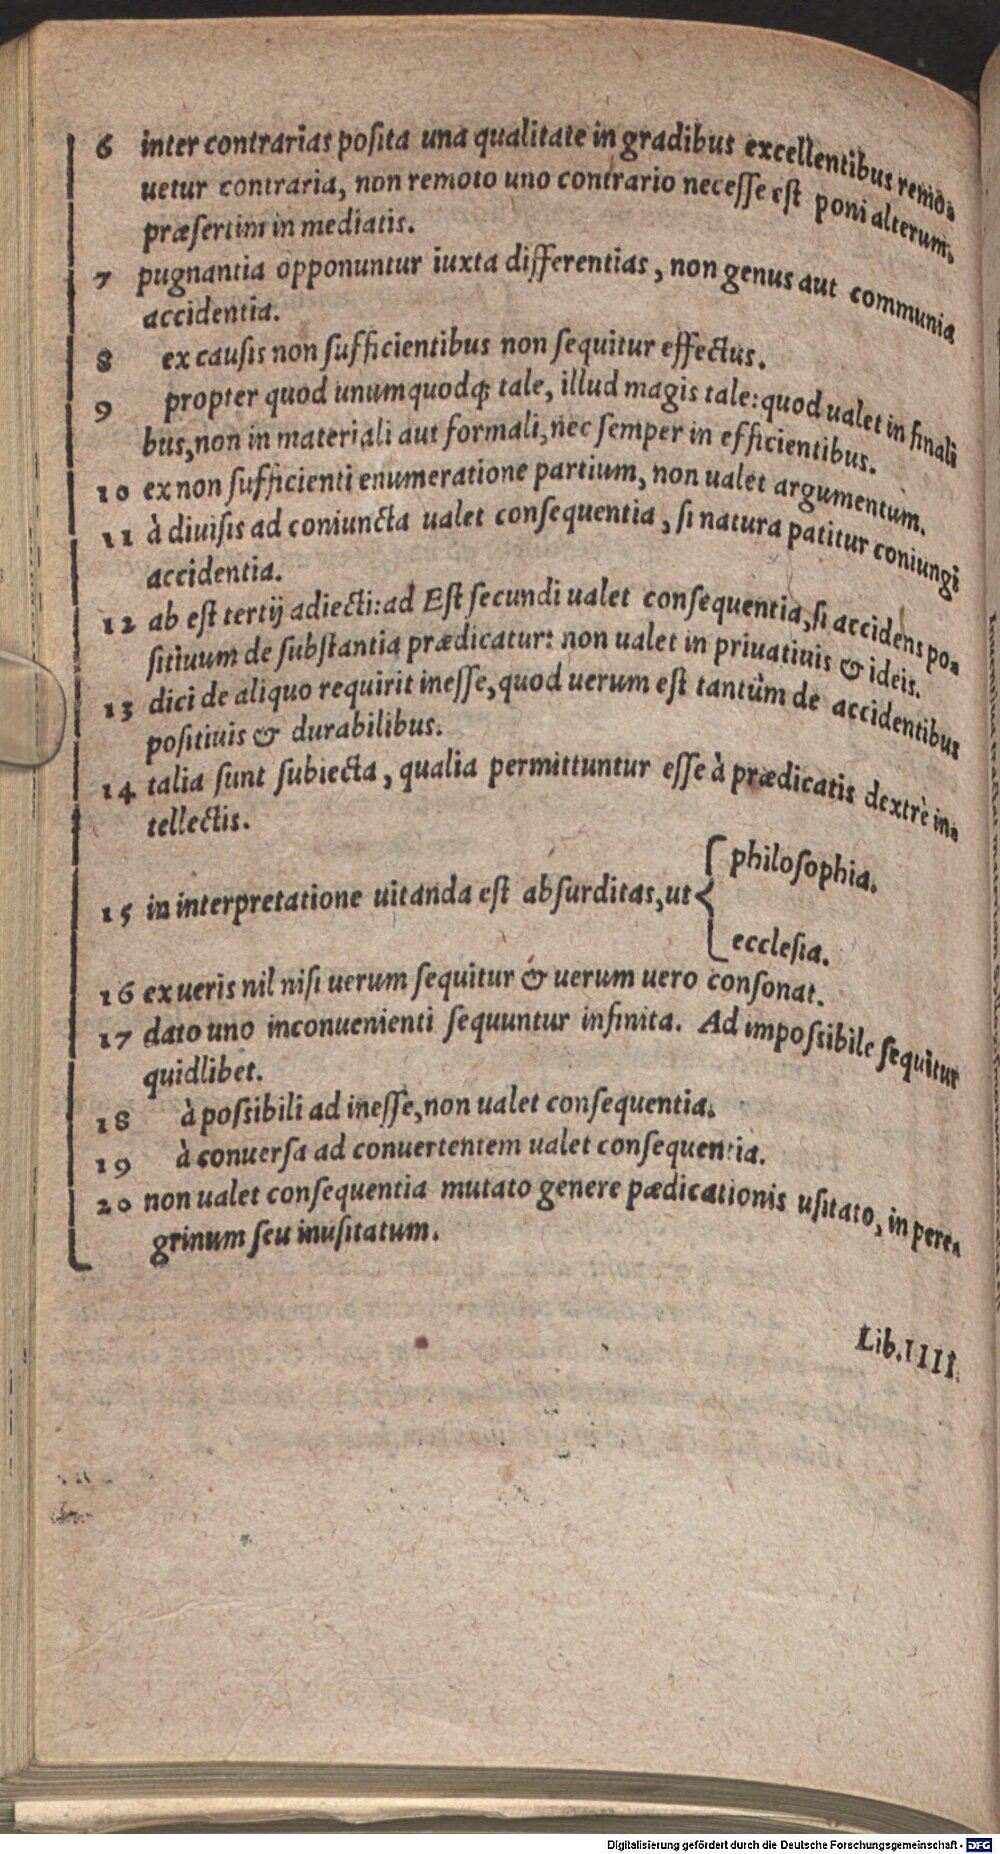 6 inter contrarias posita una qualitate in gradibus excellentibus remo-
uetur contraria, non remoto uno contrario necesse est poni alterum,
præsertim in mediatis.
7 pugnantia opponuntur iuxta differentias, non genus aut communia
accidentia.
8 ex causis non sufficientibus non sequitur effectus.
9 propter quod unumquodq; tale, illud magis tale: quod ualet in finali
bus, non in materiali aut formali, nec semper in efficientibus.
10 ex non sufficienti enumeratione partium, non ualet argumentum.
11 à diuisis ad coniuncta ualet consequentia, si natura patitur coniungi
accidentia.
12 ab est tertij adiecti: ad Est secundi ualet consequentia, si accidens po-
sitiuum de substantia prædicatur: non ualet in priuatiuis & ideis.
13 dici de aliquo requirit inesse, quod uerum est tantùm de accidentibus
positiuis & durabilibus.
14 talia sunt subiecta, qualia permittuntur esse à prædicatis dextrè in-
tellectis.
philosophia.
15 in interpretatione uitanda est absurditas, ut
ecclesia.
16 ex ueris nil nisi uerum sequitur & uerum uero consonat.
17 dato uno inconuenienti sequuntur infinita. Ad impossibile sequitur
quidlibet.
18 à possibili ad inesse, non ualet consequentia.
19 à conuersa ad conuertentem ualet consequentia.
20 non ualet consequentia mutato genere pædicationis usitato, in pere-
grinum seu inusitatum.
Lib. IIII.
Digitalisierung gefördert durch die Deutsche Forschungsgemeinschaft - DFG